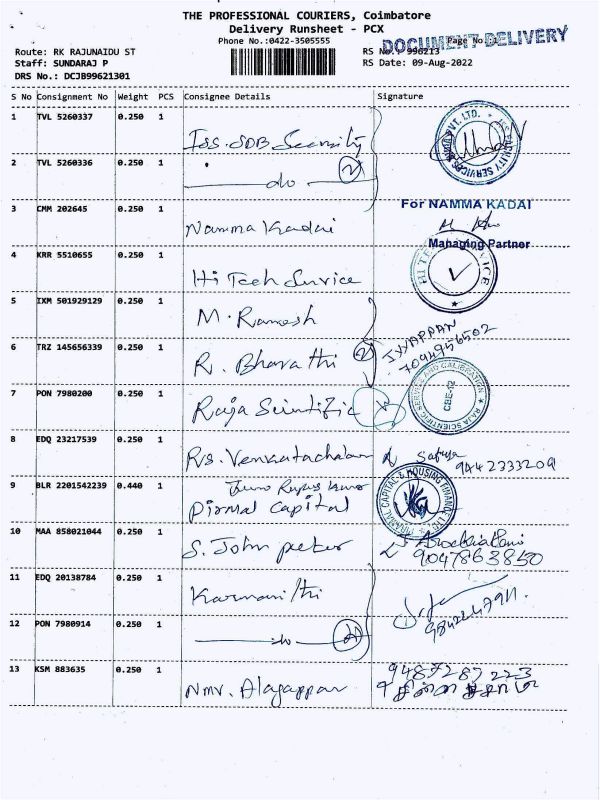 THE PROFESSIONAL COURIERS, Coimbatore
Delivery Runsheet - PCX
Phone No.:0422-3505555
Page No.:
DOCUMENT DELIVERY
Route: RK RAJUNAIDU ST
RS No.: 996213
Staff: SUNDARAJ P
RS Date: 09-Aug-2022
DRS No.: DCJB99621301
S No Consignment No Weight PCS Consignee Details Signature
1 TVL 5260337 0.250 1 Iss. SDB Security
2 TVL 5260336 0.250 1 do 2
3 CMM 202645 0.250 1 Namma Kadai
For NAMMA KADAI
Managing Partner
4 KRR 5510655 0.250 1 Hi Tech Service
5 IXM 501929129 0.250 1 M. Ramesh
6 TRZ 145656339 0.250 1 R. Bharathi 2
IYYAPPAN
7094956502
7 PON 7980200 0.250 1 Raja Scientific
RAJA SCIENTIFIC SERVICE AND CALIBRATION
CBE-12
8 EDQ 23217539 0.250 1 Rs. Venkatachalam
9442333209
9 BLR 2201542239 0.440 1
Pirmal Capital
PIRAMAL CAPITAL & HOUSING FINANCE LTD
10 MAA 858021044 0.250 1 S. John peter
9047863850
11 EDQ 20138784 0.250 1
12 PON 7980914 0.250 1 do
13 KSM 883635 0.250 1 Nmv. Alagappan